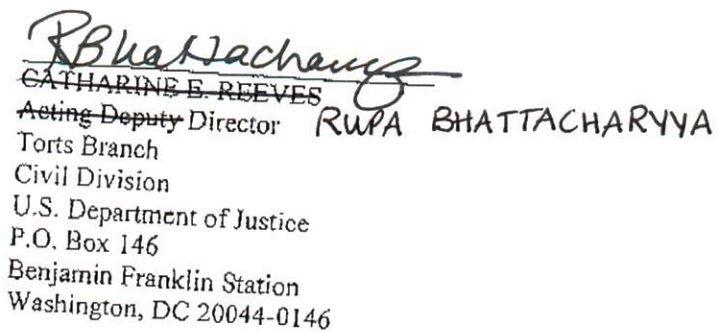 RBhattacharyya
CATHARINE E. REEVES
Acting Deputy Director RUPA BHATTACHARYYA
Torts Branch
Civil Division
U.S. Department of Justice
P.O. Box 146
Benjamin Franklin Station
Washington, DC 20044-0146